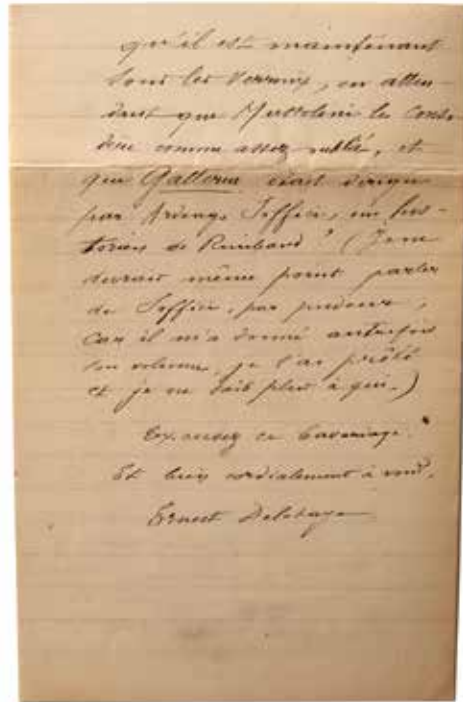 qu'il est maintenant
sous les verroux, en atten-
dant que Mussolini les consi-
dère comme assez oublié, et
que Galleria était dirigé
par Ardengo Soffici, un his-
torien de Rimbaud ? (Je ne
devrais même point parler
de Soffici, par pudeur,
car il m'a donné autrefois
son volume, je l'ai prêté
et je ne sais plus à qui.)
Excusez ce bavardage.
Et bien cordialement à vous,
Ernest Delahaye